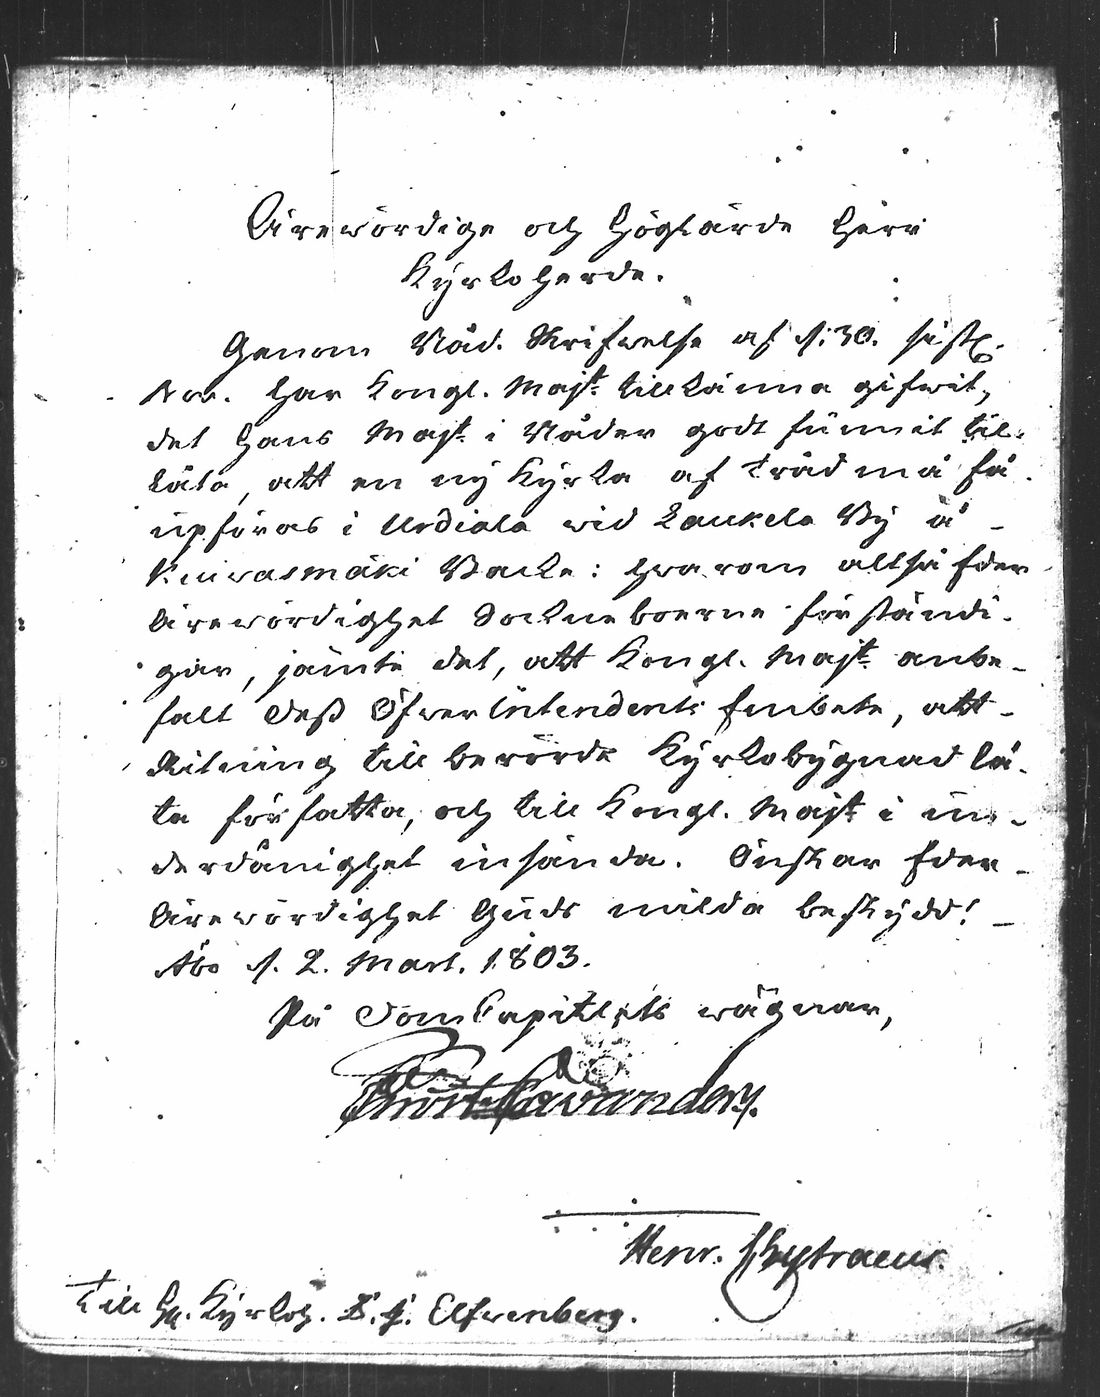 Ärewördige och Höglärde Herr
Kyrkoherde.
Genom Nåd. Skrifwelse af d. 30. sistl.
Nov. har Kongl. Majt. tillkänna gifwit,
det Hans Majt. i Nåder godt funnit til-
låta, att en ny Kyrka af träd må få
upföras i Urdiala wid Laukela By å
Kuiwasmäki Backe: hwarom altså Eder
Ärewördighet Sockneboerne förständi-
gar, jämte det, att Kongl. Majt. anbe-
falt Dess Öfwer Intendents Embete, att
Ritning till berörde Kyrkobygnad lå-
ta författa, och till Kongl. Majt. i un-
derdånighet insända. Önskar Eder
Ärewördighet Guds milda beskydd!
Åbo d. 2. Mart. 1803.
På DomCapitlets wägnar,
Henr. Chytraeus.
Till Hr. Kyrkoh. Elfwenberg.